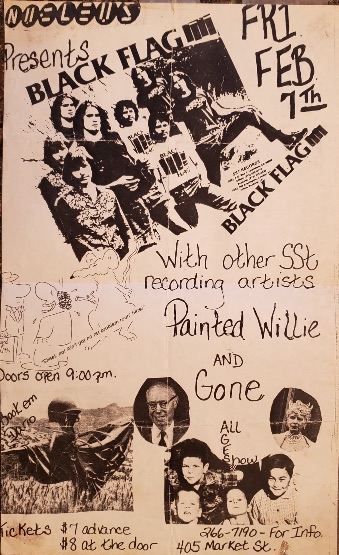 NUCLEUS
Presents
FRI
FEB.
7Th
BLACK FLAG
BLACK FLAG
With other SSt
recording artists
Painted Willie
AND
Gone
Doors open 9:00 p.m.
Book em
Danno
All
Ages
Show
Tickets $7 advance
$8 at the door
266-7190 - For Info.
405 Market St.